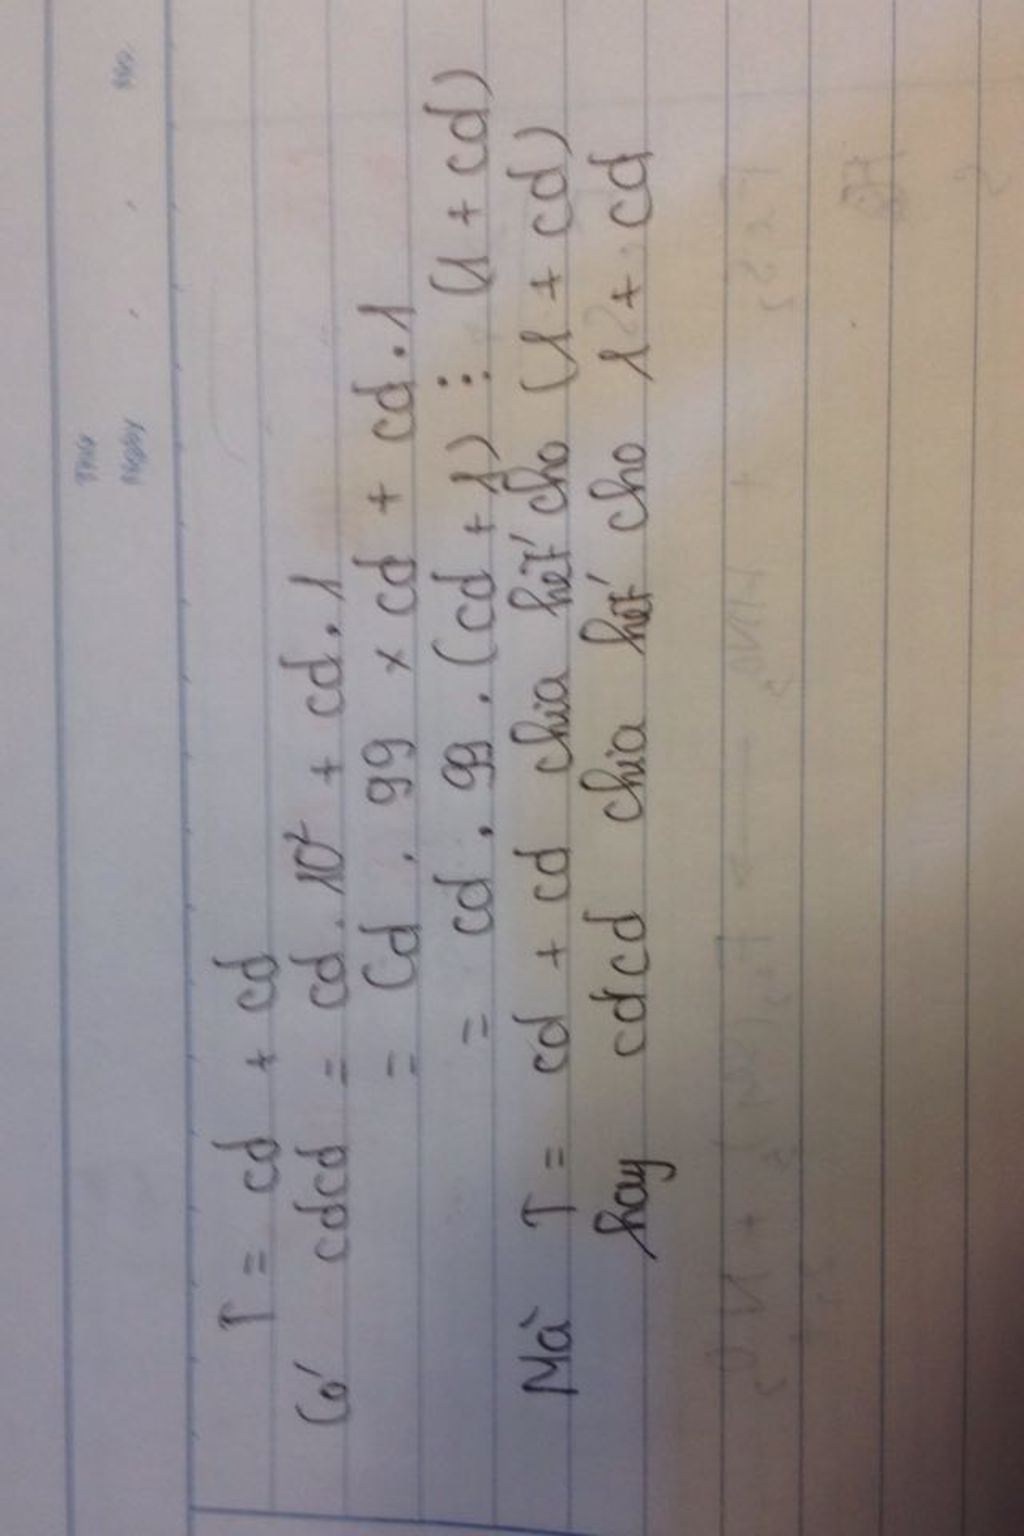 Thứ
Ngày
No.
T = cd + cd
Có cdcd = cd . 10² + cd . 1
= cd . 99 x cd + cd . 1
= cd . 99 . (cd + 1) ⋮ (1 + cd)
Mà T = cd + cd chia hết cho (1 + cd)
hay cdcd chia hết cho 1 + cd